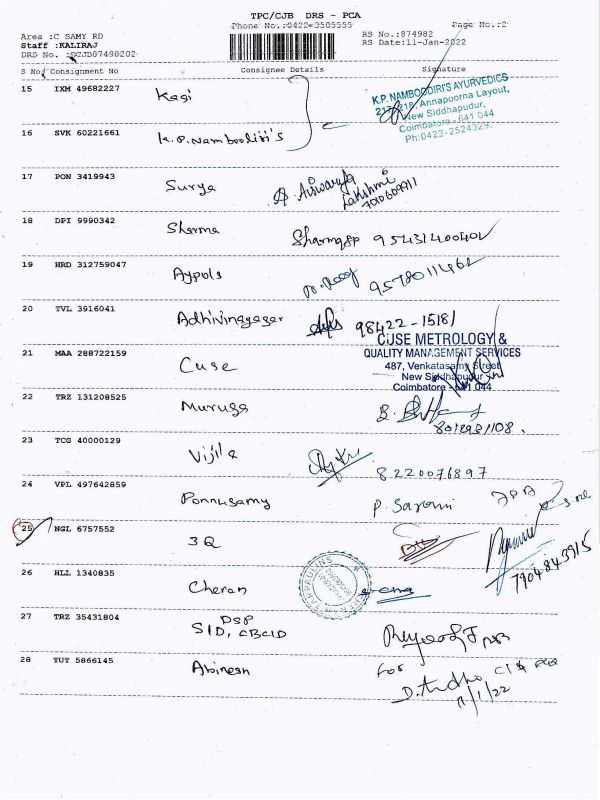 TPC/CJB DRS - PCA
Phone No.:0422-3505555
Page No.:2
Area :C SAMY RD
Staff :KALIRAJ
DRS No. :SCJD07498202
RS No.:874982
RS Date:11-Jan-2022
S No/ Consignment No Consignee Details Signature
15 IXM 49682227 Kasi
K.P. NAMBOODIRI'S AYURVEDICS
Annapoorna Layout,
New Siddhapudur,
Coimbatore - 641 044
Ph:0422-2524329.
16 SVK 60221661 K.P.Namboodiri's
17 PON 3419943 Surya A. Aiswarya
Lakshmi
18 DPI 9990342 Sharma
19 HRD 312759047 Aypols 9578011462
20 TVL 3916041 Adhivinayagar 98422-15181
CUSE METROLOGY &
QUALITY MANAGEMENT SERVICES
487, Venkatasamy Street
New Siddhapudur
Coimbatore - 641 044
21 MAA 288722159 Cuse
22 TRZ 131208525 Muruga
23 TCG 40000129 Vijila 8220076897
24 VPL 497642859 Ponnusamy P. Sarouni
25 NGL 6757552 3Q
7904843915
26 HLL 1340835 Cheran
27 TRZ 35431804 DSP
SID, CBCID
28 TUT 5866145 Abinesh for
11/1/22